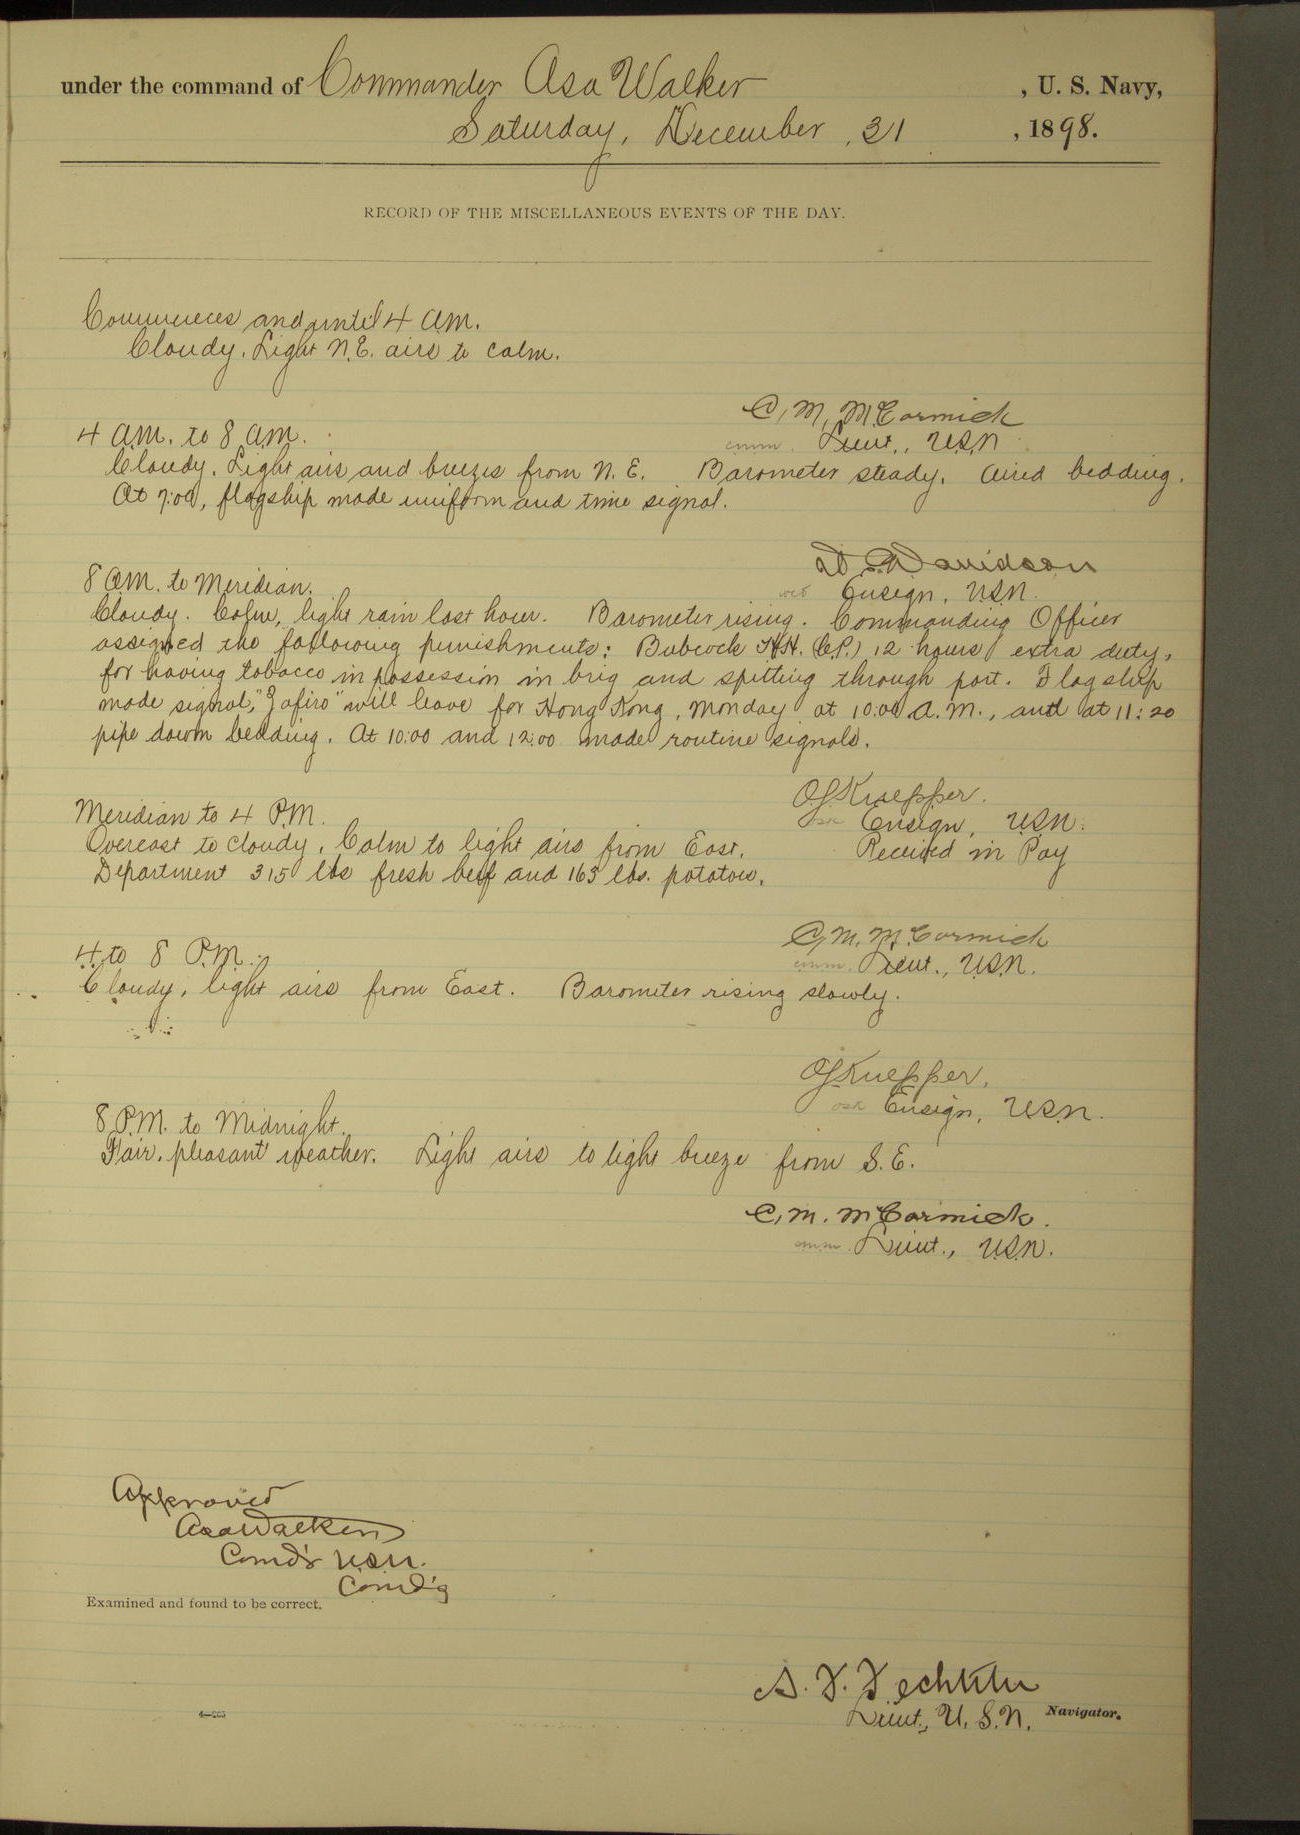 under the command of Commander Asa Walker, U. S. Navy,
Saturday, December, 31, 1898.
RECORD OF THE MISCELLANEOUS EVENTS OF THE DAY.
Commences and until 4 A.M.
Cloudy. Light N.E. airs to calm.
C. M. McCormick
cmm. Lieut., U.S.N.
4 A.M. to 8 A.M.
Cloudy. Light airs and breezes from N.E. Barometer steady. Aired bedding.
At 7:00, flagship made uniform and time signal.
W. C. Davidson
wcd Ensign, U.S.N.
8 A.M. to Meridian.
Cloudy. Calm, light rain last hour. Barometer rising. Commanding Officer
assigned the following punishments: Babcock H.H. (C.P.) 12 hours extra duty,
for having tobacco in possession in brig and spitting through port. Flagship
made signal, "Zafiro" will leave for Hong Kong, Monday at 10:00 A.M., and at 11:20
pipe down bedding. At 10:00 and 12:00 made routine signals.
Meridian to 4 P.M.
Ensign, U.S.N.
Overcast to cloudy. Calm to light airs from East. Received in Pay
Department 315 lbs fresh beef and 163 lbs. potatoes.
C. M. McCormick
cmm. Lieut., U.S.N.
4 to 8 P.M.
Cloudy, light airs from East. Barometer rising slowly.
Ensign, U.S.N.
8 P.M. to Midnight.
Fair, pleasant weather. Light airs to light breeze from S.E.
C. M. McCormick.
cmm. Lieut., U.S.N.
Approved
Asa Walker
Comd'r U.S.N.
Comd'g
Examined and found to be correct.
Lieut., U.S.N. Navigator.